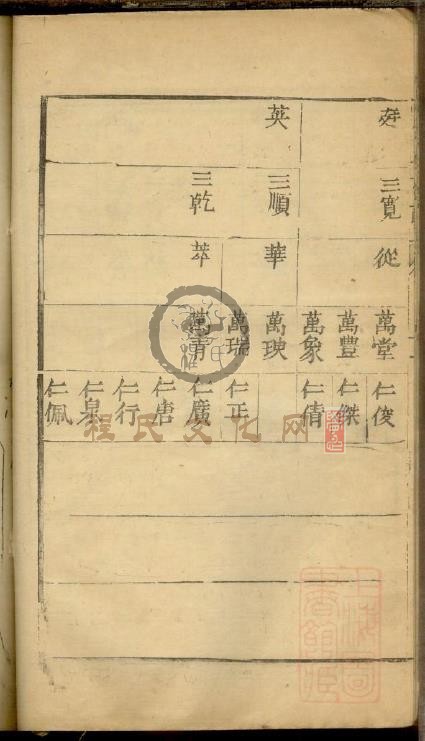 三寬
從
萬堂
仁俊
萬豐
仁傑
萬象
仁倩
英
三順
華
萬瑛
萬瑞
仁正
三乾
萃
萬青
仁廣
仁唐
仁行
仁泉
仁佩
程氏文化网